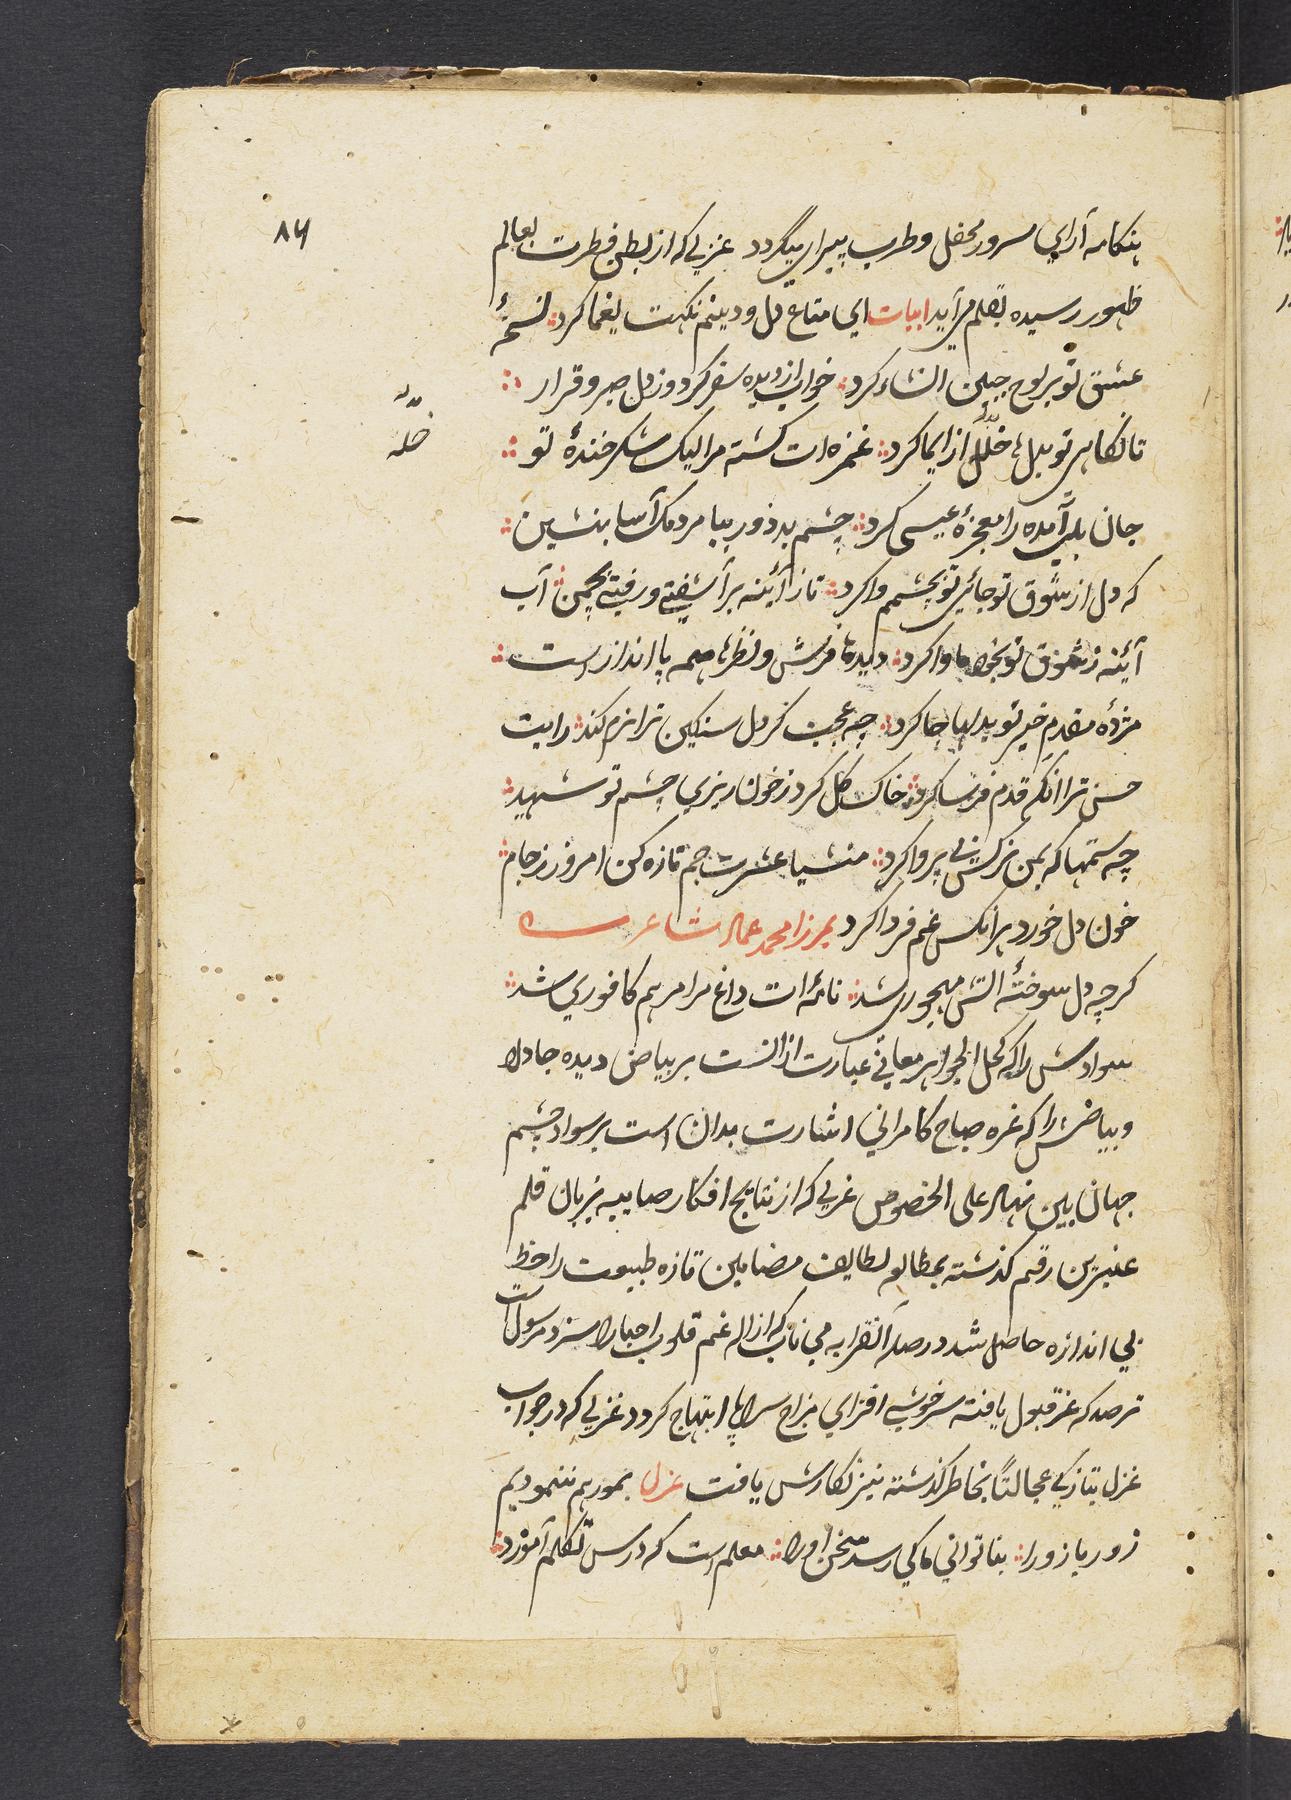 ۸۶
هنکامه آرای سرور محفل و طرب پیرای میگردد غزلی که از بطن فطرت بعالم
ظهور رسیده بقلم می آید ابیات ای متاع دل و دینم نکهت یغما کرد نسخهٔ
عشق تو بر لوح جبین انشاء کرد خواب از دیده سفر کرد و ز دل صبر و قرار
تا نکاهی تو بدلها خلل از ایما کرد غمزه ات کشته مرا لیک شکر خندهٔ تو
خلد
جان بلب آمده را معجزهٔ عیسی کرد چشم بد دور بیا مردمک آسا بنشین
که دل از شوق تو جائی تو بچشمم وا کرد تا ز آئینه برآشفتی و رفتی بچمن آب
آئینه ز شوق تو بخود ماوا کرد دیدها فرش و نظرها همه پا انداز است
مژدهٔ مقدم خیر تو بدلها جا کرد چه عجب کر دل سنکین ترا نرم کند رایت
حسن ترا آنکه قدم فرسا کرد خاک کل کرد ز خون ریزی چشم تو شهید
چه ستمها که بمن نرکس بی پروا کرد منشیا عشرت جم تازه کن امروز ز جام
خون دل خورد هر آنکس غم فردا کرد بمرزا محمد عماد شاعر
کرچه دل سوختهٔ آتش مهجوری شد نامهٔ ات داغ مرا مرهم کافوری شد
سوادش را که کحل الجواهر معانی عبارت از آنست بر بیاض دیده جا داد
و بیاضش را که غره صباح کامرانی اشارت بدان است بر سواد چشم
جهان بین نهاد علی الخصوص غزلی که از نتایج افکار صایبه بزبان قلم
عنبرین رقم کذشته بمطالعه لطایف مضامین تازه طبیعت را حظ
بی اندازه حاصل شد در صله آن قرابه می ناب که ازاله غم قلوب احبا را سزد مرسول است
ترصد که عز قبول یافته سرخوشی افزای مزاج سراپا ابتهاج کردد غزلی که در جواب
غزل بتازکی عجالتاً بخاطر کذشته نیز نکارش یافت غزل بمور هم ننمودیم
زور بازو را بناتوانی ما کی رسد سخن او را معلم است که درس تکلم آموزد